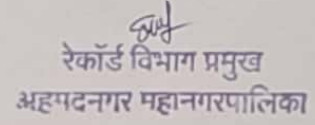 रेकॉर्ड विभाग प्रमुख
अहमदनगर महानगरपालिका